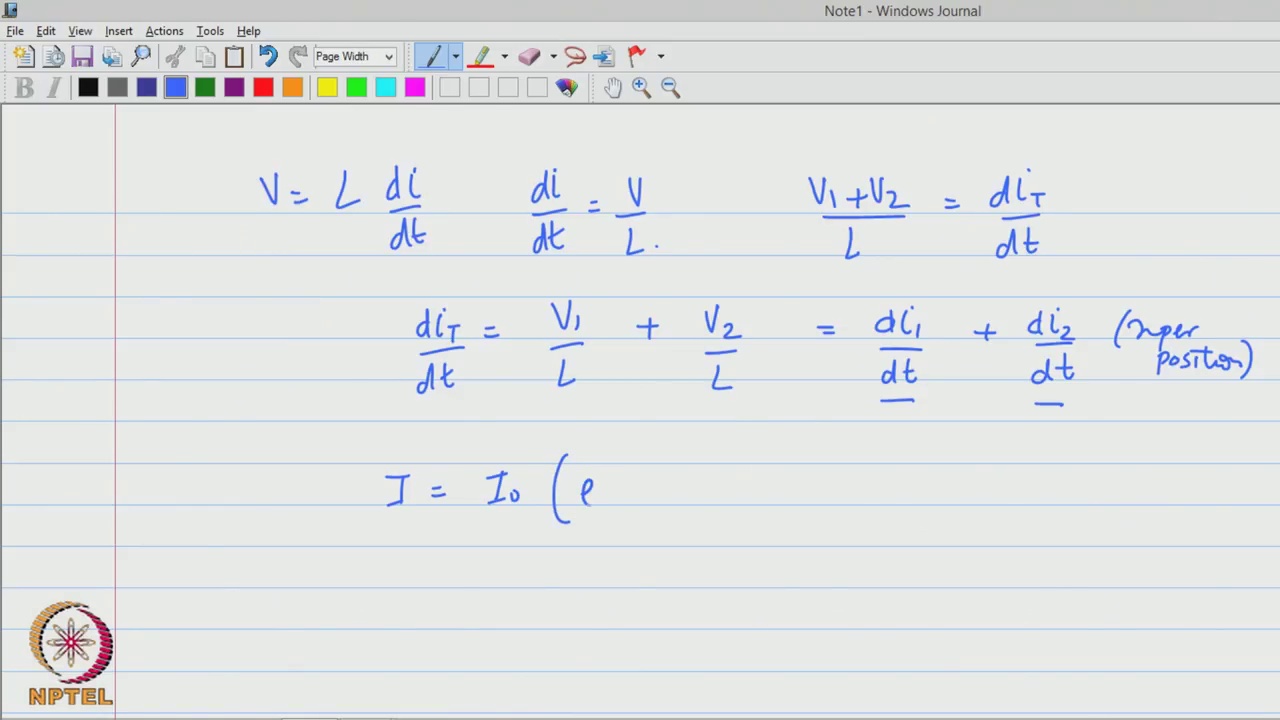 Note1 - Windows Journal
File Edit View Insert Actions Tools Help
Page Width
B I
V = L di/dt di/dt = V/L. (V1+V2)/L = diT/dt
diT/dt = V1/L + V2/L = di1/dt + di2/dt (super
position)
I = I0 (e
NPTEL